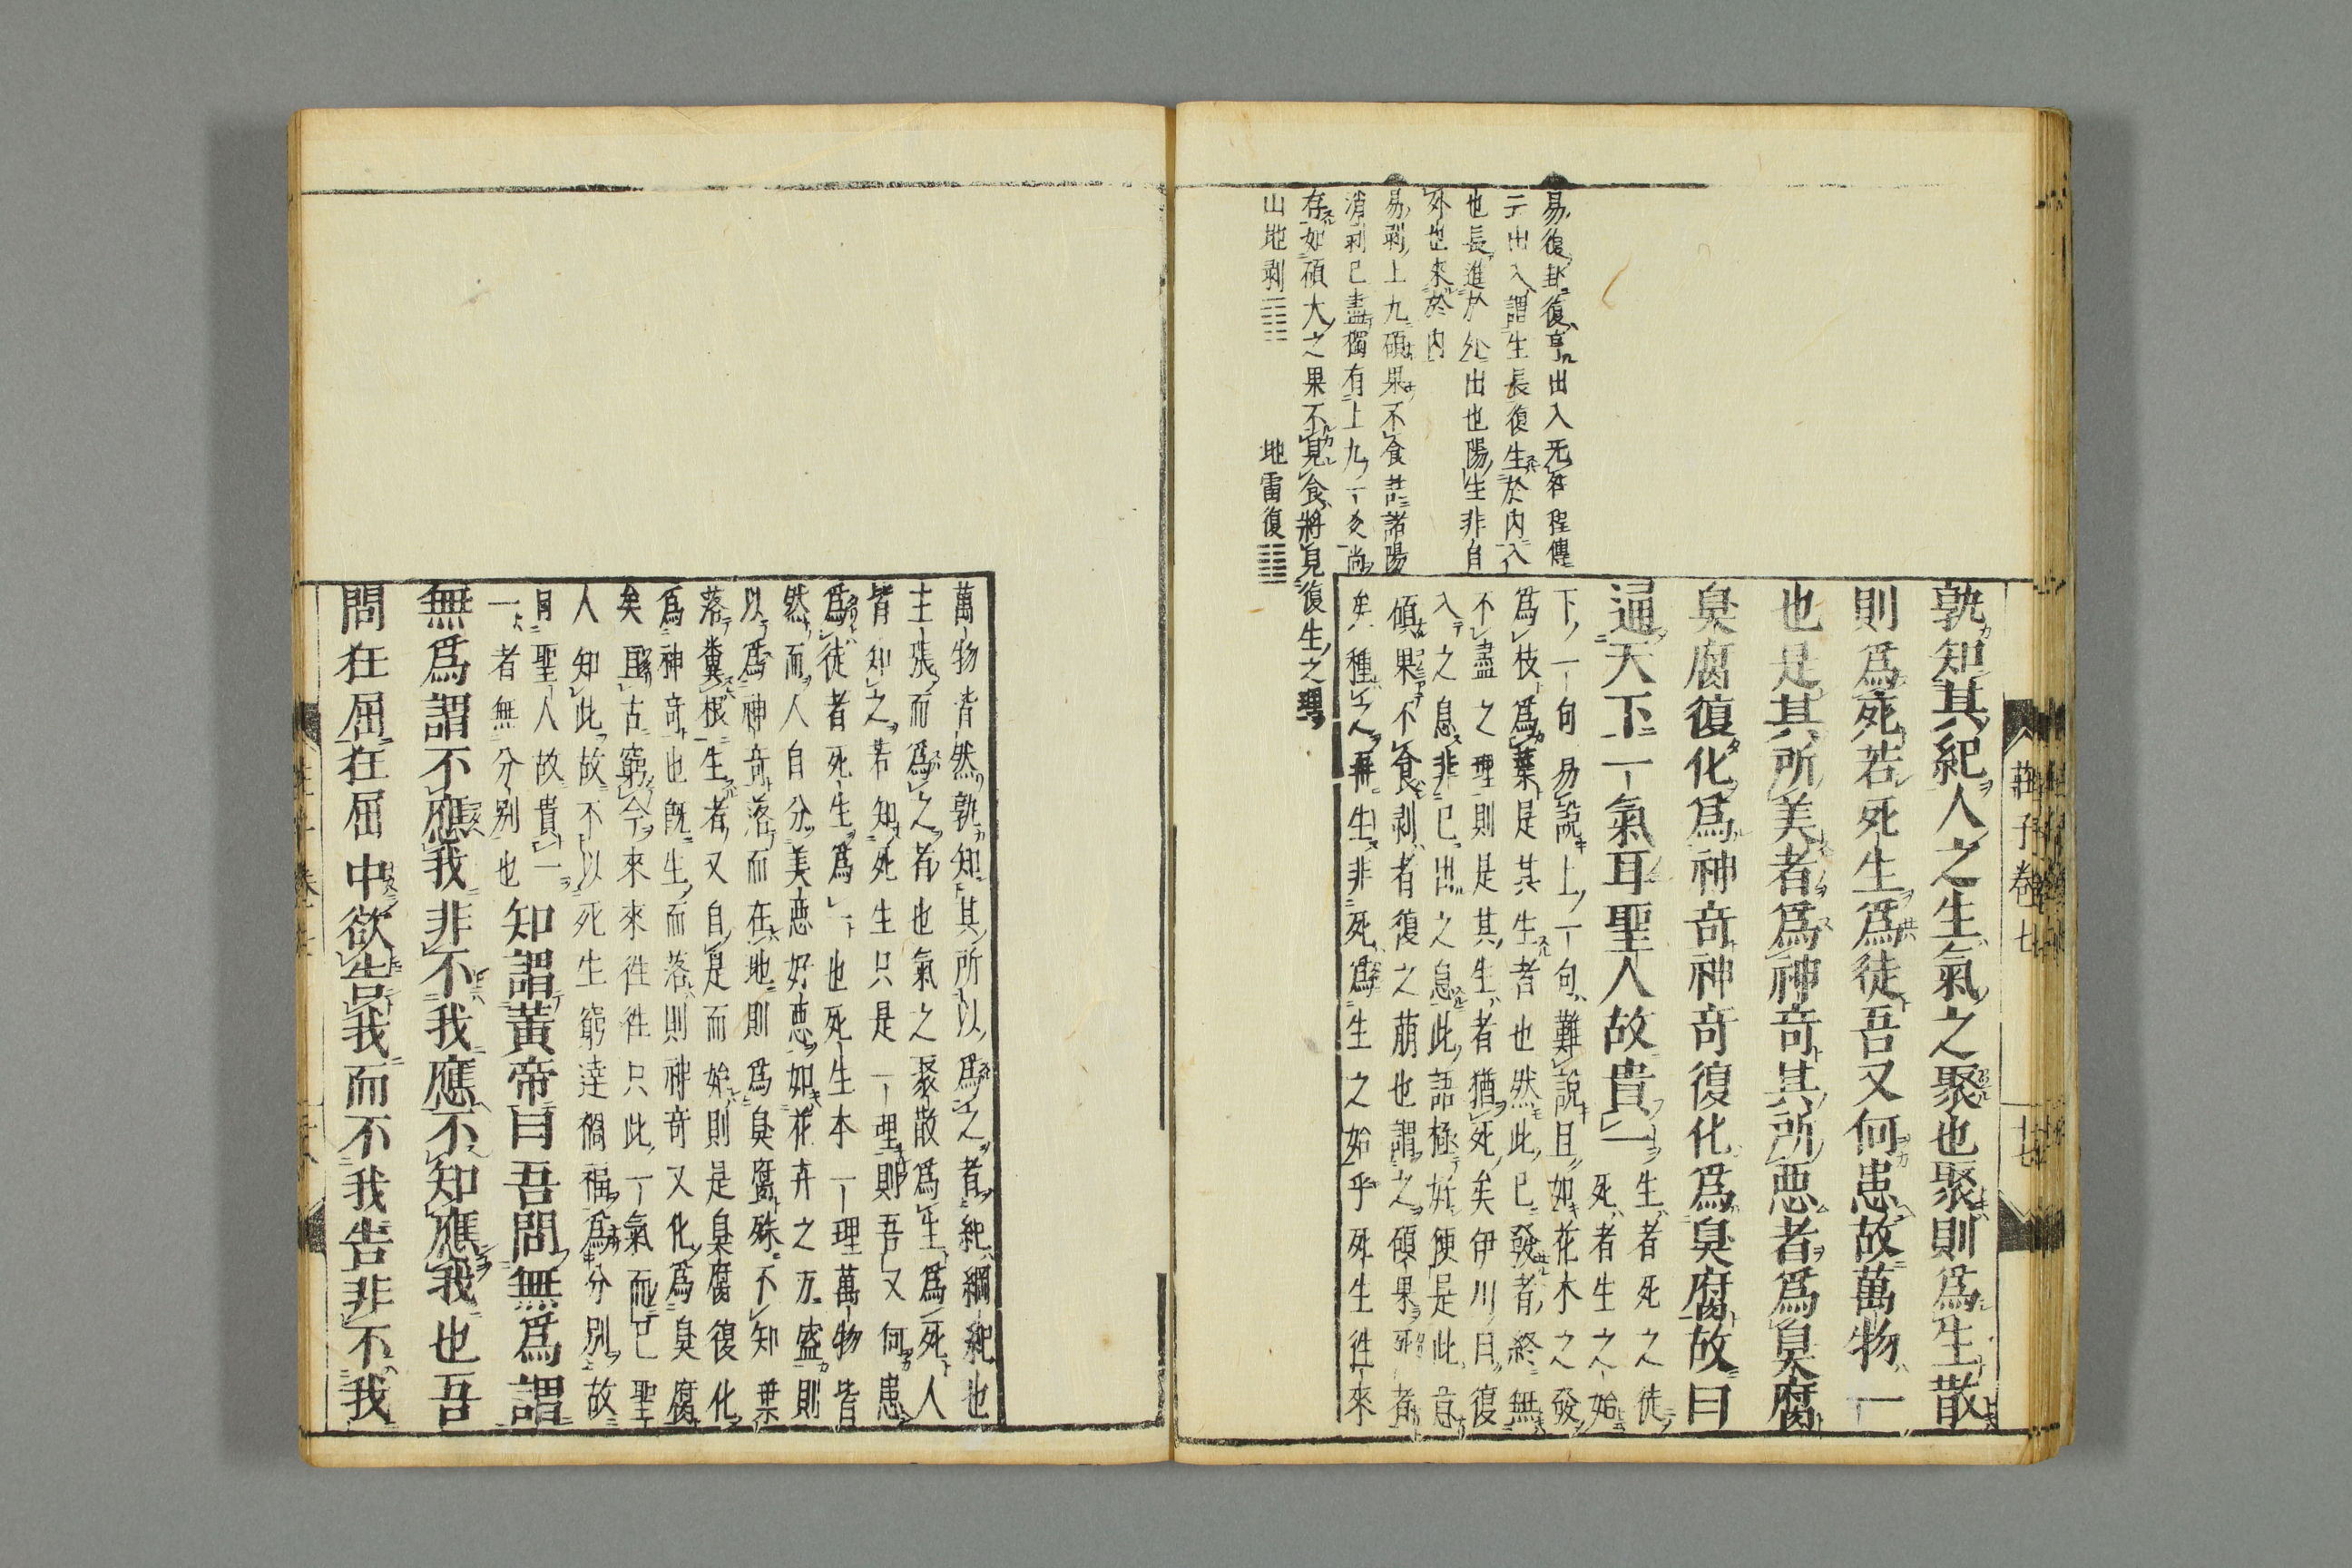 易復卦復亨出入无疾程傳
云出入謂生長復生於內入
也長進於外出也陽生非自
外也來於內
易剥上九碩果不食若諸陽
消剥已盡獨有上九一爻尚
存如碩大之果不見食將見復生之理
山地剥 地雷復
莊子卷七
十七
孰知其紀人之生氣之聚也聚則爲生散
則爲死若死生爲徒吾又何患故萬物一
也是其所美者爲神奇其所惡者爲臭腐
臭腐復化爲神奇神奇復化爲臭腐故曰
通天下一氣耳聖人故貴一
生者死之徒
死者生之始
下一句易說上一句難說且如花木之發
爲枝爲葉是其生者也然此已發者終無
不盡之理則是其生者猶死矣伊川曰復
入之息非已出之息此語極好便是此意
碩果不食剥者復之萠也謂之碩果死者
矣種之再生非死爲生之始乎死生徃來
萬物皆然孰知其所以爲之者紀綱紀也
主張而爲之者也氣之聚散爲生爲死人
皆知之若知死生只是一理則吾又何患
爲徒者死生爲一也死生本一理萬物皆
然而人自分美惡好惡如花卉之方盛則
以爲神奇落而在地則爲臭腐殊不知葉
落糞根生者又自是而始則是臭腐復化
爲神奇也旣生而落則神奇又化爲臭腐
矣亘古窮今來來徃徃只此一氣而已聖
人知此故不以死生窮達禍福爲分別故
曰聖人故貴一
一者無分别也
知謂黃帝曰吾問無爲謂
無爲謂不應我非不我應不知應我也吾
問狂屈狂屈中欲告我而不我告非不我